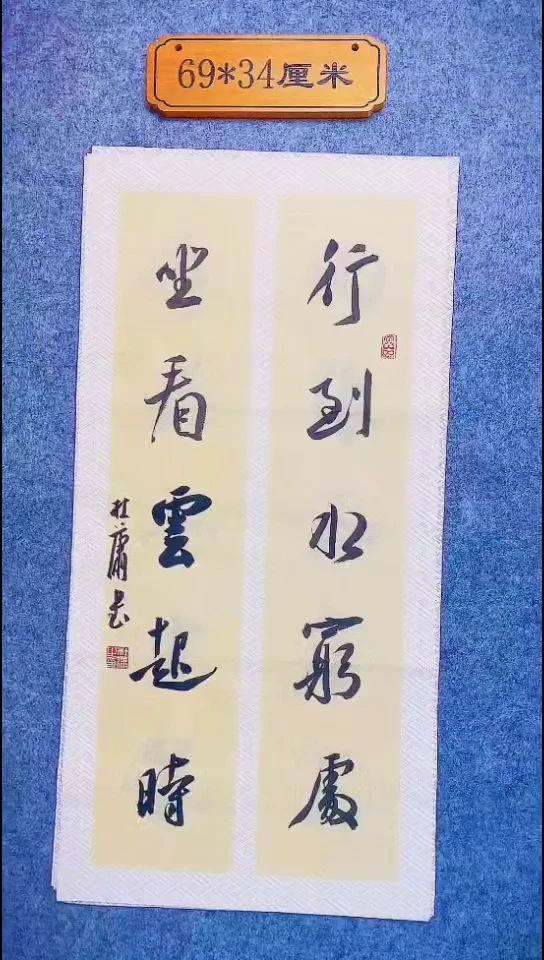 69*34厘米
行到水窮處
坐看雲起時
杜庸書